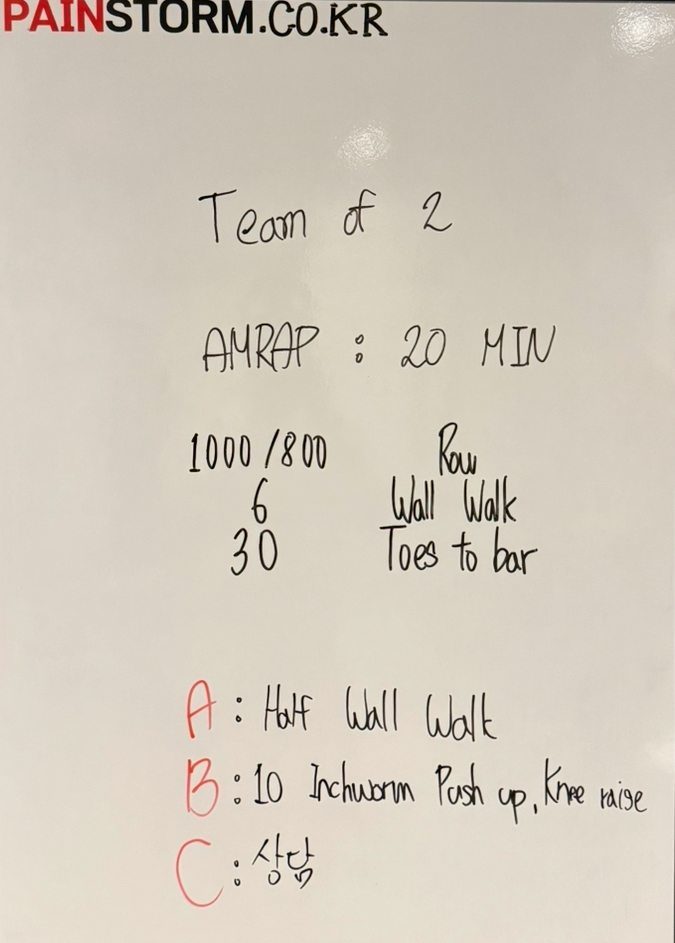 PAINSTORM.CO.KR
Team of 2
AMRAP : 20 MIN
1000/800 Row
6 Wall Walk
30 Toes to bar
A : Half Wall Walk
B : 10 Inchworm Push up, Knee raise
C : 상담